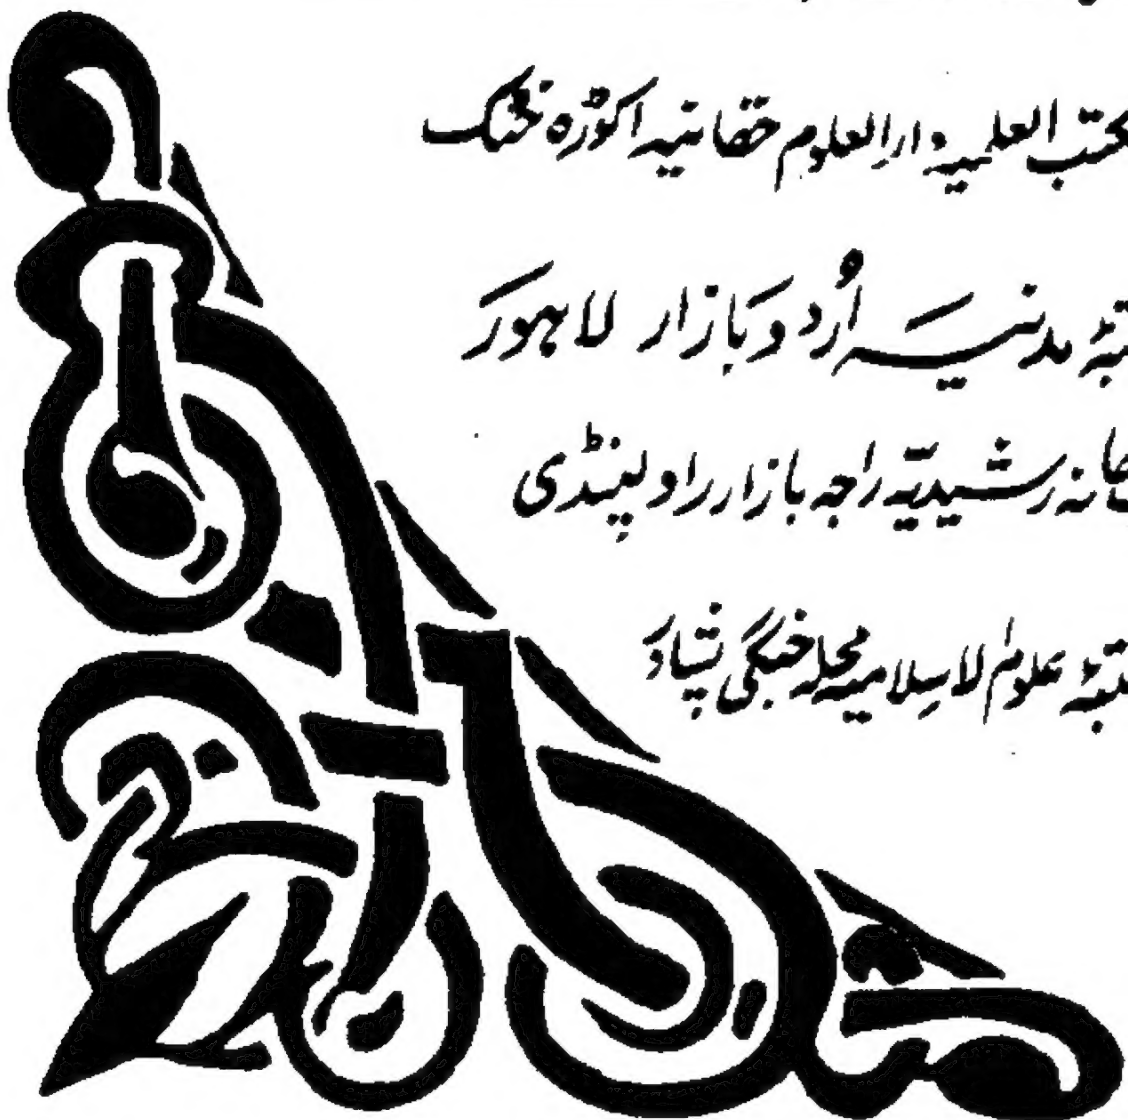 العلمیہ دارالعلوم حقانیہ اکوڑہ خٹک
مدنیہ اُردو بازار لاہور
رشیدیّہ راجہ بازار راولپنڈی
علوم لاسلامیہ محلہ جنگی پشاور